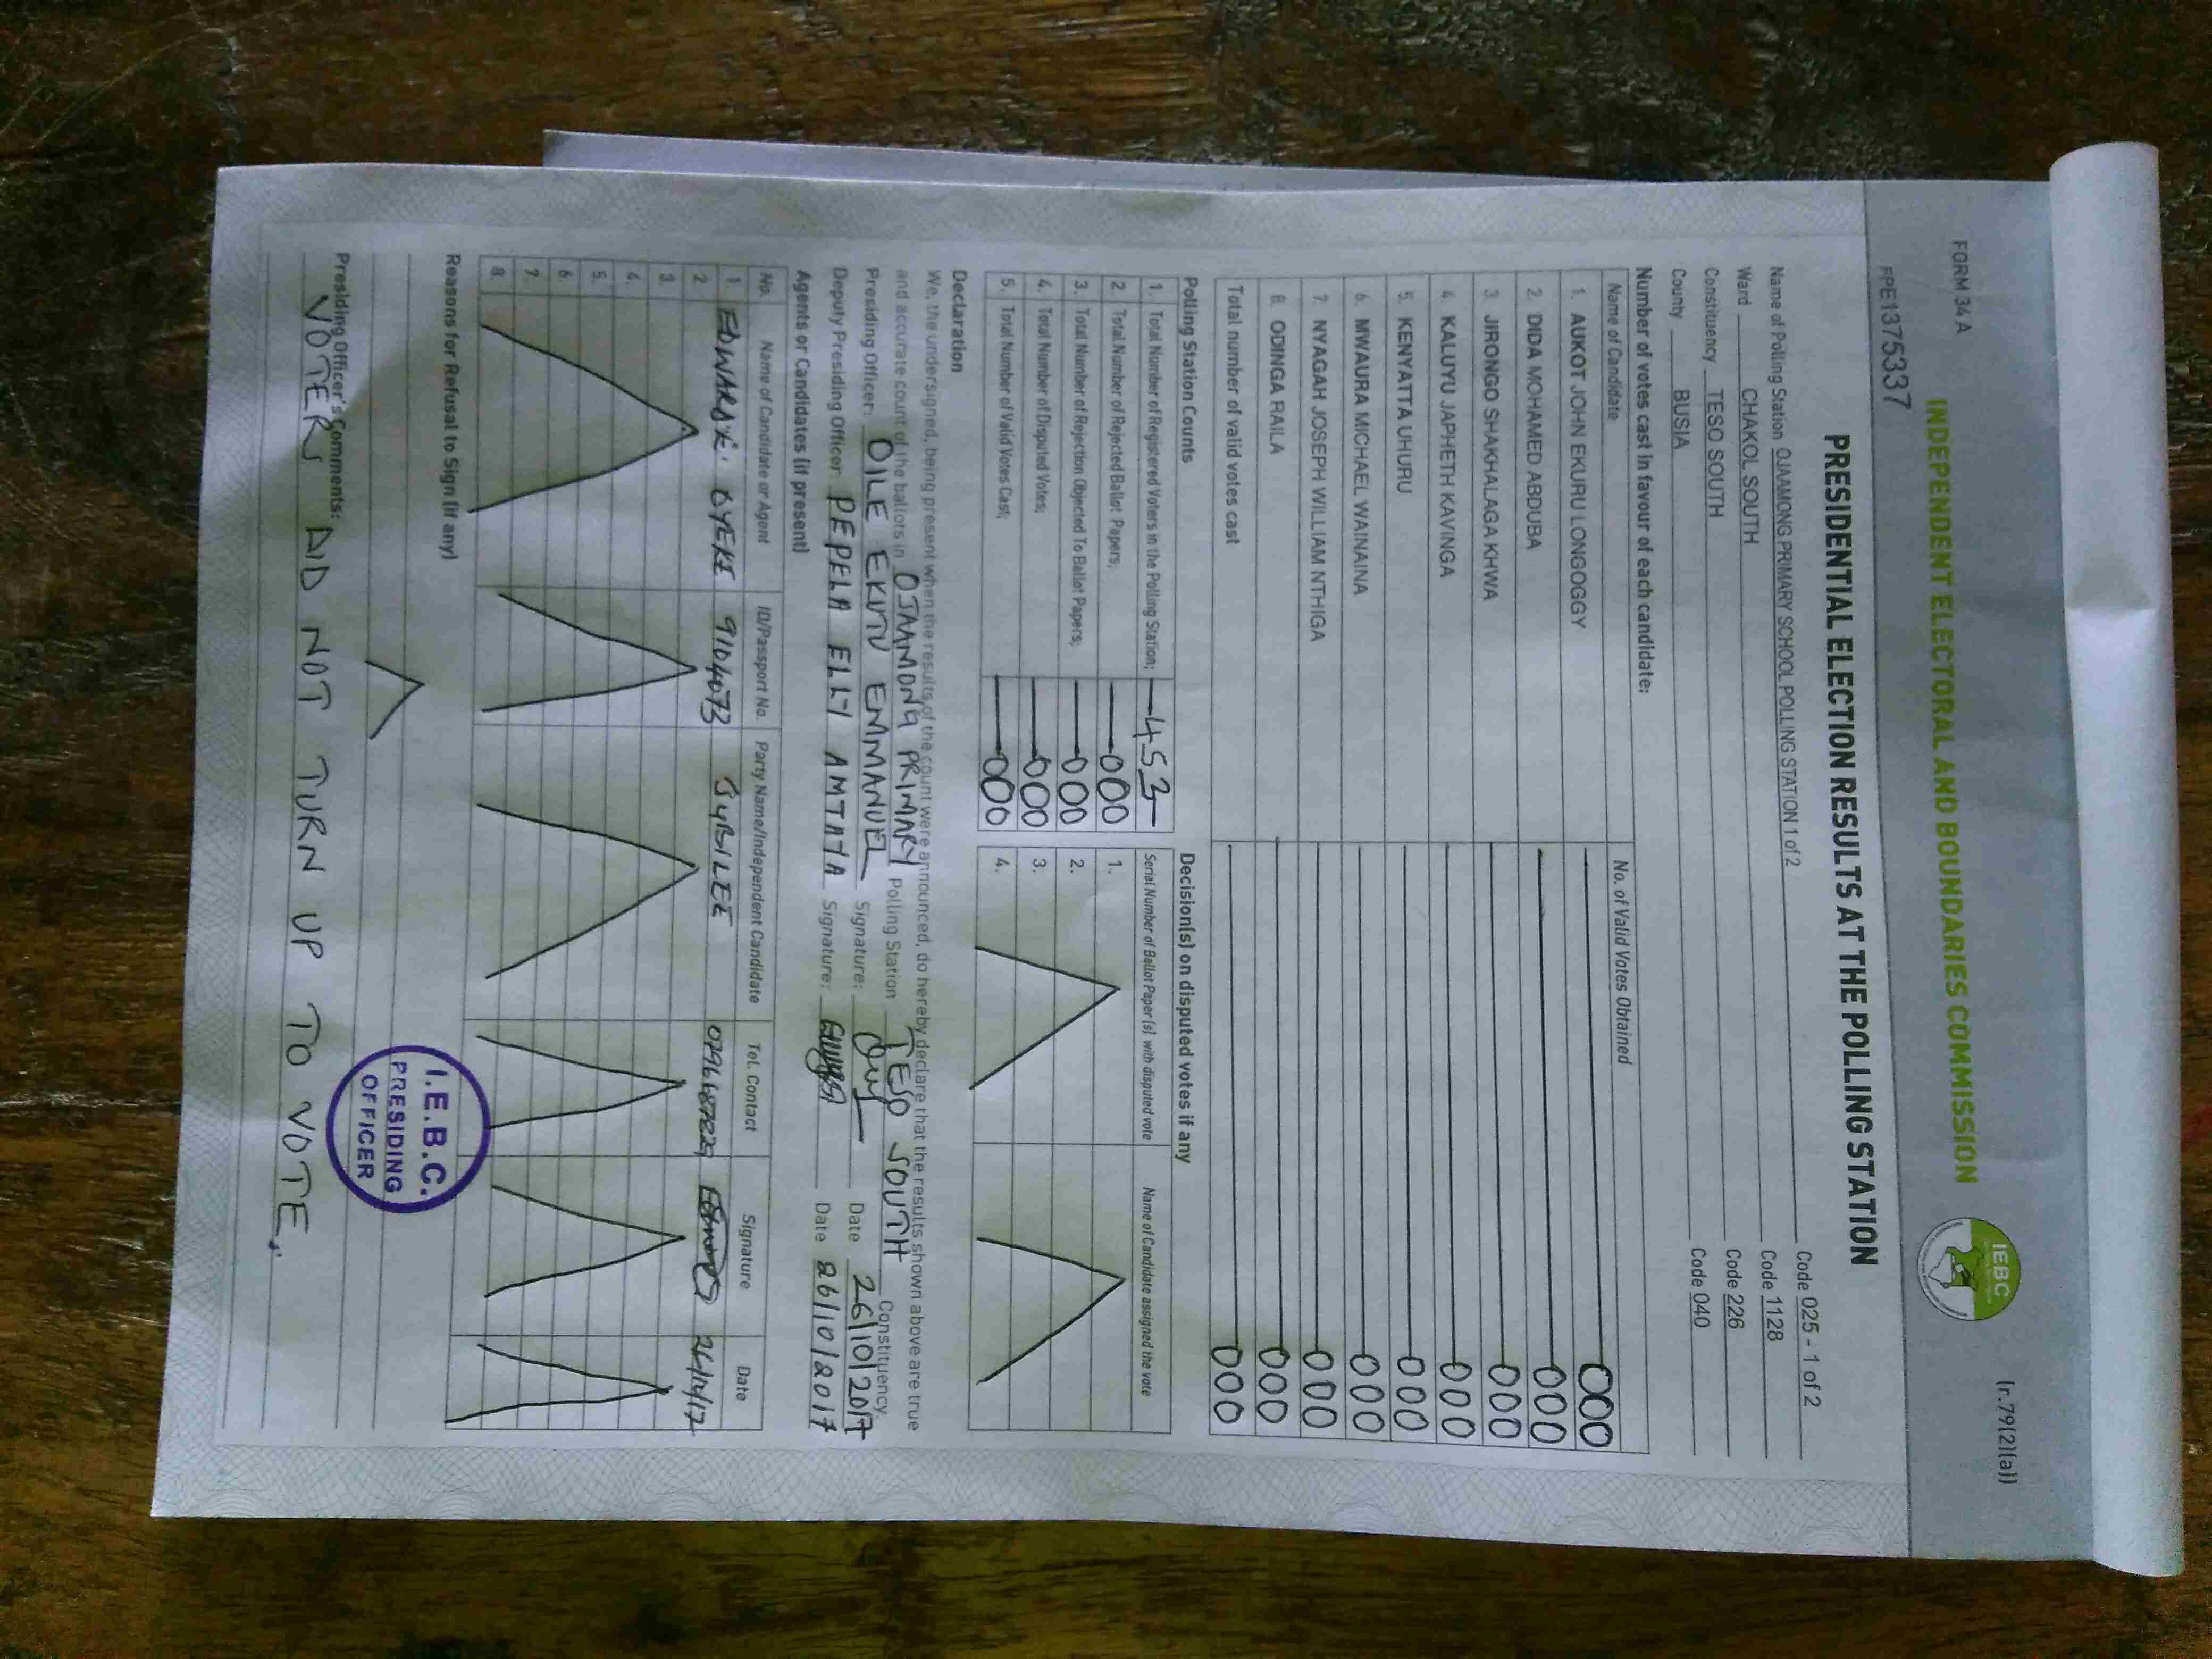 FORM 34 A
(r.79(2)(a))
INDEPENDENT ELECTORAL AND BOUNDARIES COMMISSION
IEBC
PPE1375337
PRESIDENTIAL ELECTION RESULTS AT THE POLLING STATION
Name of Polling Station OJAAMONG PRIMARY SCHOOL POLLING STATION 1 of 2 Code 025 - 1 of 2
Ward CHAKOL SOUTH Code 1128
Constituency TESO SOUTH Code 226
County BUSIA Code 040
Number of votes cast in favour of each candidate:
Name of Candidate No. of Valid Votes Obtained
1. AUKOT JOHN EKURU LONGOGGY 000
2. DIDA MOHAMED ABDUBA 000
3. JIRONGO SHAKHALAGA KHWA 000
4. KALUYU JAPHETH KAVINGA 000
5. KENYATTA UHURU 000
6. MWAURA MICHAEL WAINAINA 000
7. NYAGAH JOSEPH WILLIAM NTHIGA 000
8. ODINGA RAILA 000
Total number of valid votes cast 000
Polling Station Counts
1. Total Number of Registered Voters in the Polling Station; 453
2. Total Number of Rejected Ballot Papers; 000
3. Total Number of Rejection Objected To Ballot Papers; 000
4. Total Number of Disputed Votes; 000
5. Total Number of Valid Votes Cast; 000
Decision(s) on disputed votes if any
Serial Number of Ballot Paper(s) with disputed vote Name of Candidate assigned the vote
1.
2.
3.
4.
Declaration
We, the undersigned, being present when the results of the count were announced, do hereby declare that the results shown above are true
and accurate count of the ballots in OJAAMONG PRIMARY Polling Station TESO SOUTH Constituency.
Presiding Officer: OILE EKUTU EMMANUEL Signature: Date 26/10/2017
Deputy Presiding Officer PEPELA ELLY AMTATA Signature: Date 26/10/2017
Agents or Candidates (if present)
No. Name of Candidate or Agent ID/Passport No. Party Name/Independent Candidate Tel. Contact Signature Date
1 EDWARD 9104073 JUBILEE 26/10/17
2
3
4.
5.
6
7.
8.
Reasons for Refusal to Sign (if any)
Presiding Officer's Comments:
VOTERS DID NOT TURN UP TO VOTE.
I.E.B.C.
PRESIDING
OFFICER